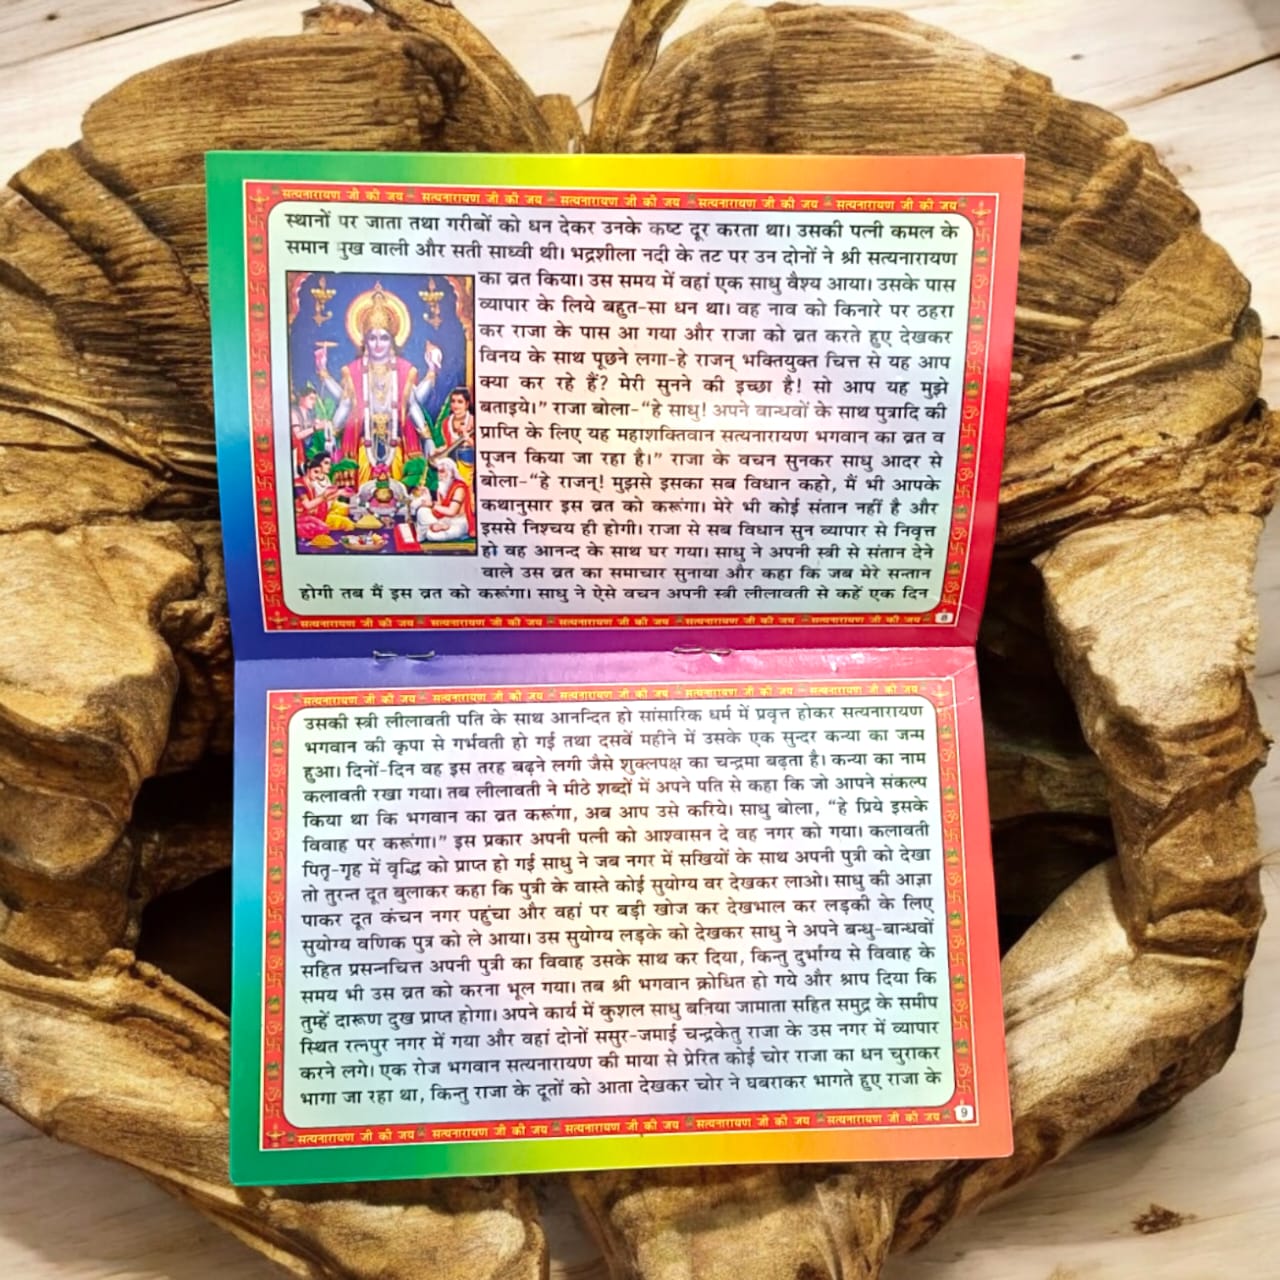 सत्यनारायण जी की जय सत्यनारायण जी की जय सत्यनारायण जी की जय सत्यनारायण जी की जय सत्यनारायण जी की जय
स्थानों पर जाता तथा गरीबों को धन देकर उनके कष्ट दूर करता था। उसकी पत्नी कमल के
समान मुख वाली और सती साध्वी थी। भद्रशीला नदी के तट पर उन दोनों ने श्री सत्यनारायण
का व्रत किया। उस समय में वहां एक साधु वैश्य आया। उसके पास
व्यापार के लिये बहुत-सा धन था। वह नाव को किनारे पर ठहरा
कर राजा के पास आ गया और राजा को व्रत करते हुए देखकर
विनय के साथ पूछने लगा-हे राजन् भक्तियुक्त चित्त से यह आप
क्या कर रहे हैं? मेरी सुनने की इच्छा है! सो आप यह मुझे
बताइये।” राजा बोला-“हे साधु! अपने बान्धवों के साथ पुत्रादि की
प्राप्ति के लिए यह महाशक्तिवान सत्यनारायण भगवान का व्रत व
पूजन किया जा रहा है।” राजा के वचन सुनकर साधु आदर से
बोला-“हे राजन्! मुझसे इसका सब विधान कहो, मैं भी आपके
कथानुसार इस व्रत को करूंगा। मेरे भी कोई संतान नहीं है और
इससे निश्चय ही होगी। राजा से सब विधान सुन व्यापार से निवृत्त
हो वह आनन्द के साथ घर गया। साधु ने अपनी स्त्री से संतान देने
वाले उस व्रत का समाचार सुनाया और कहा कि जब मेरे सन्तान
होगी तब मैं इस व्रत को करूंगा। साधु ने ऐसे वचन अपनी स्त्री लीलावती से कहें एक दिन
सत्यनारायण जी की जय सत्यनारायण जी की जय सत्यनारायण जी की जय सत्यनारायण जी की जय सत्यनारायण जी की जय
8
सत्यनारायण जी की जय सत्यनारायण जी की जय सत्यनारायण जी की जय सत्यनारायण जी की जय सत्यनारायण जी की जय
उसकी स्त्री लीलावती पति के साथ आनन्दित हो सांसारिक धर्म में प्रवृत्त होकर सत्यनारायण
भगवान की कृपा से गर्भवती हो गई तथा दसवें महीने में उसके एक सुन्दर कन्या का जन्म
हुआ। दिनों-दिन वह इस तरह बढ़ने लगी जैसे शुक्लपक्ष का चन्द्रमा बढ़ता है। कन्या का नाम
कलावती रखा गया। तब लीलावती ने मीठे शब्दों में अपने पति से कहा कि जो आपने संकल्प
किया था कि भगवान का व्रत करूंगा, अब आप उसे करिये। साधु बोला, “हे प्रिये इसके
विवाह पर करूंगा।” इस प्रकार अपनी पत्नी को आश्वासन दे वह नगर को गया। कलावती
पितृ-गृह में वृद्धि को प्राप्त हो गई साधु ने जब नगर में सखियों के साथ अपनी पुत्री को देखा
तो तुरन्त दूत बुलाकर कहा कि पुत्री के वास्ते कोई सुयोग्य वर देखकर लाओ। साधु की आज्ञा
पाकर दूत कंचन नगर पहुंचा और वहां पर बड़ी खोज कर देखभाल कर लड़की के लिए
सुयोग्य वणिक पुत्र को ले आया। उस सुयोग्य लड़के को देखकर साधु ने अपने बन्धु-बान्धवों
सहित प्रसन्नचित्त अपनी पुत्री का विवाह उसके साथ कर दिया, किन्तु दुर्भाग्य से विवाह के
समय भी उस व्रत को करना भूल गया। तब श्री भगवान क्रोधित हो गये और श्राप दिया कि
तुम्हें दारूण दुख प्राप्त होगा। अपने कार्य में कुशल साधु बनिया जामाता सहित समुद्र के समीप
स्थित रत्नपुर नगर में गया और वहां दोनों ससुर-जमाई चन्द्रकेतु राजा के उस नगर में व्यापार
करने लगे। एक रोज भगवान सत्यनारायण की माया से प्रेरित कोई चोर राजा का धन चुराकर
भागा जा रहा था, किन्तु राजा के दूतों को आता देखकर चोर ने घबराकर भागते हुए राजा के
9
सत्यनारायण जी की जय सत्यनारायण जी की जय सत्यनारायण जी की जय सत्यनारायण जी की जय सत्यनारायण जी की जय